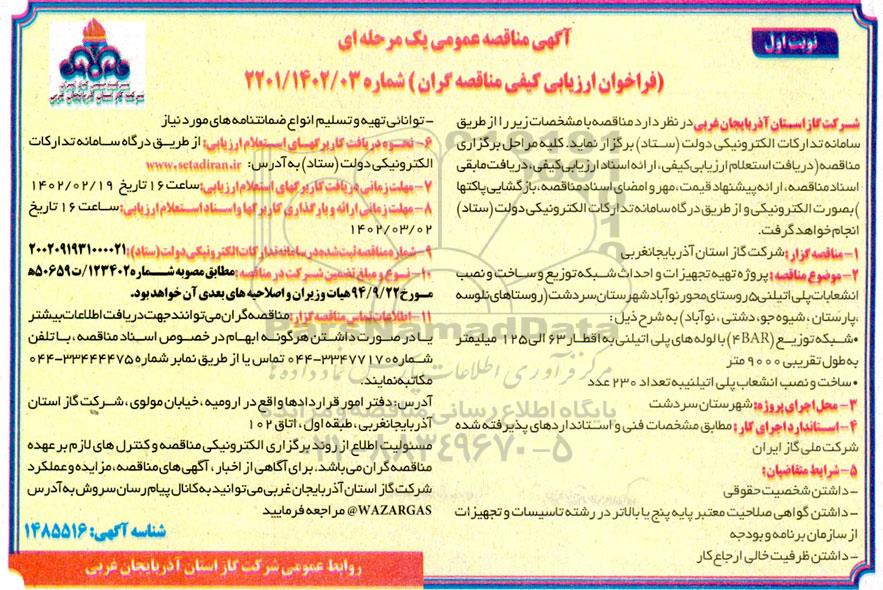 نوبت اول
آگهی مناقصه عمومی یک مرحله ای
(فراخوان ارزیابی کیفی مناقصه گران) شماره ۲۲۰۱/۱۴۰۲/۰۳
شرکت گاز استان آذربایجان غربی
شرکت گاز استان آذربایجان غربی در نظر دارد مناقصه با مشخصات زیر را از طریق
سامانه تدارکات الکترونیکی دولت (ستاد) برگزار نماید. کلیه مراحل برگزاری
مناقصه (دریافت استعلام ارزیابی کیفی، ارائه اسناد ارزیابی کیفی، دریافت مابقی
اسناد مناقصه، ارائه پیشنهاد قیمت، مهر و امضای اسناد مناقصه، بازگشایی پاکتها
) بصورت الکترونیکی و از طریق درگاه سامانه تدارکات الکترونیکی دولت (ستاد)
انجام خواهد گرفت.
۱- مناقصه گزار: شرکت گاز استان آذربایجانغربی
۲- موضوع مناقصه: پروژه تهیه تجهیزات و احداث شبکه توزیع و ساخت و نصب
انشعابات پلی اتیلنی ۵ روستای محور نوآباد شهرستان سردشت (روستاهای نلوسه
،پارستان، شیوه جو، دشتی، نوآباد) به شرح ذیل:
•شبکه توزیع (4BAR) با لوله های پلی اتیلنی به اقطار ۶۳ الی ۱۲۵ میلیمتر
به طول تقریبی ۹۰۰۰ متر
•ساخت و نصب انشعاب پلی اتیلنی به تعداد ۲۳۰ عدد
۳- محل اجرای پروژه: شهرستان سردشت
۴- استاندارد اجرای کار: مطابق مشخصات فنی و استانداردهای پذیرفته شده
شرکت ملی گاز ایران
۵- شرایط متقاضیان:
- داشتن شخصیت حقوقی
- داشتن گواهی صلاحیت معتبر پایه پنج یا بالاتر در رشته تاسیسات و تجهیزات
از سازمان برنامه و بودجه
- داشتن ظرفیت خالی ارجاع کار
- توانائی تهیه و تسلیم انواع ضمانتنامه های مورد نیاز
۶- نحوه دریافت کاربرگهای استعلام ارزیابی: از طریق درگاه سامانه تدارکات
الکترونیکی دولت (ستاد) به آدرس: www.setadiran.ir
۷- مهلت زمانی دریافت کاربرگهای استعلام ارزیابی: ساعت ۱۶ تاریخ ۱۴۰۲/۰۲/۱۹
۸- مهلت زمانی ارائه و بارگذاری کاربرگها و اسناد استعلام ارزیابی: ساعت ۱۶ تاریخ
۱۴۰۲/۰۳/۰۲
۹- شماره مناقصه ثبت شده در سامانه تدارکات الکترونیکی دولت (ستاد): ۲۰۰۲۰۹۱۹۳۱۰۰۰۰۲۱
۱۰- نوع و مبلغ تضمین شرکت در مناقصه: مطابق مصوبه شماره ۱۲۳۴۰۲/ت۵۰۶۵۹ه
مورخ ۹۴/۹/۲۲ هیات وزیران و اصلاحیه های بعدی آن خواهد بود.
۱۱- اطلاعات تماس مناقصه گزار: مناقصه گران می توانند جهت دریافت اطلاعات بیشتر
یا در صورت داشتن هرگونه ابهام در خصوص اسناد مناقصه، با تلفن
شماره ۳۳۴۷۷۱۷۰-۰۴۴ تماس یا از طریق نمابر شماره ۳۳۴۴۴۴۷۵-۰۴۴
مکاتبه نمایند.
آدرس: دفتر امور قراردادها واقع در ارومیه، خیابان مولوی، شرکت گاز استان
آذربایجانغربی، طبقه اول، اتاق ۱۰۲
مسئولیت اطلاع از روند برگزاری الکترونیکی مناقصه و کنترل های لازم بر عهده
مناقصه گران می باشد. برای آگاهی از اخبار، آگهی های مناقصه، مزایده و عملکرد
شرکت گاز استان آذربایجان غربی می توانید به کانال پیام رسان سروش به آدرس
@WAZARGAS مراجعه فرمایید
شناسه آگهی: ۱۴۸۵۵۱۶
روابط عمومی شرکت گاز استان آذربایجان غربی
ParsNamadData
مرکز فرآوری اطلاعات پارس نماد داده ها
پایگاه اطلاع رسانی مناقصه و مزایده
۰۲۱-۸۸۳۴۹۶۷۰-۵